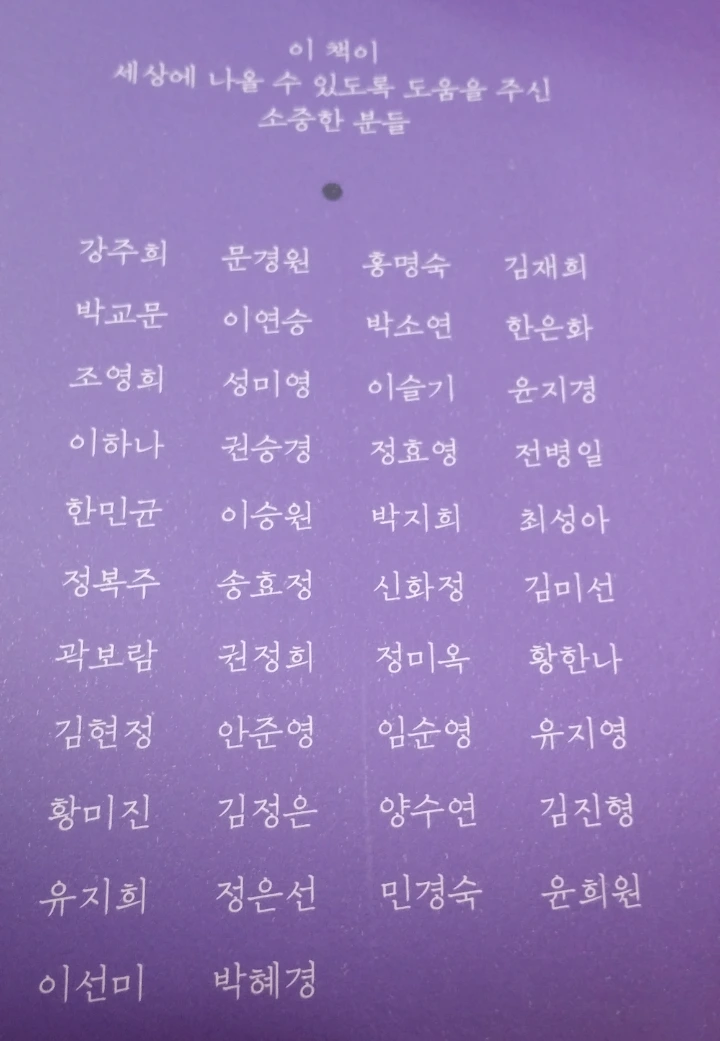 이 책이
세상에 나올 수 있도록 도움을 주신
소중한 분들
강주희 문경원 홍명숙 김재희
박교문 이연승 박소연 한은화
조영희 성미영 이슬기 윤지경
이하나 권승경 정효영 전병일
한민균 이승원 박지희 최성아
정복주 송효정 신화정 김미선
곽보람 권정희 정미옥 황한나
김현정 안준영 임순영 유지영
황미진 김정은 양수연 김진형
유지희 정은선 민경숙 윤희원
이선미 박혜경